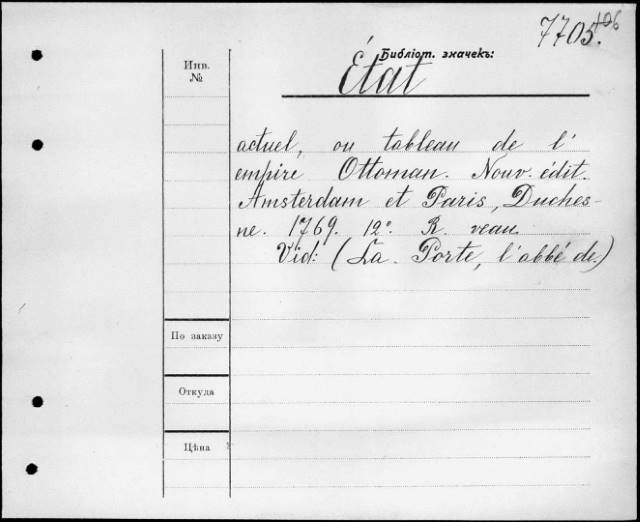 7705. 406
Библіот. значекъ:
Инв. №
État
actuel, ou tableau de l'
empire Ottoman. Nouv. édit.
Amsterdam et Paris, Duches-
ne. 1769. 12°. R. veau.
Vid: (La-Porte, l'abbé de.)
По заказу
Откуда
Цѣна